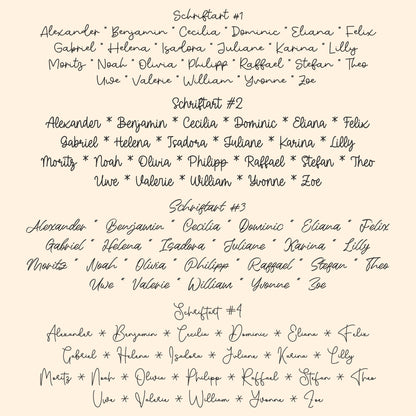 Schriftart #1
Alexander * Benjamin * Cecilia * Dominic * Eliana * Felix
Gabriel * Helena * Isadora * Juliane * Karina * Lilly
Moritz * Noah * Olivia * Philipp * Raffael * Stefan * Theo
Uwe * Valerie * William * Yvonne * Zoe
Schriftart #2
Alexander * Benjamin * Cecilia * Dominic * Eliana * Felix
Gabriel * Helena * Isadora * Juliane * Karina * Lilly
Moritz * Noah * Olivia * Philipp * Raffael * Stefan * Theo
Uwe * Valerie * William * Yvonne * Zoe
Schriftart #3
Alexander * Benjamin * Cecilia * Dominic * Eliana * Felix
Gabriel * Helena * Isadora * Juliane * Karina * Lilly
Moritz * Noah * Olivia * Philipp * Raffael * Stefan * Theo
Uwe * Valerie * William * Yvonne * Zoe
Schriftart #4
Alexander * Benjamin * Cecilia * Dominic * Eliana * Felix
Gabriel * Helena * Isadora * Juliana * Karina * Lilly
Moritz * Noah * Olivia * Philipp * Raffael * Stefan * Theo
Uwe * Valerie * William * Yvonne * Zoe